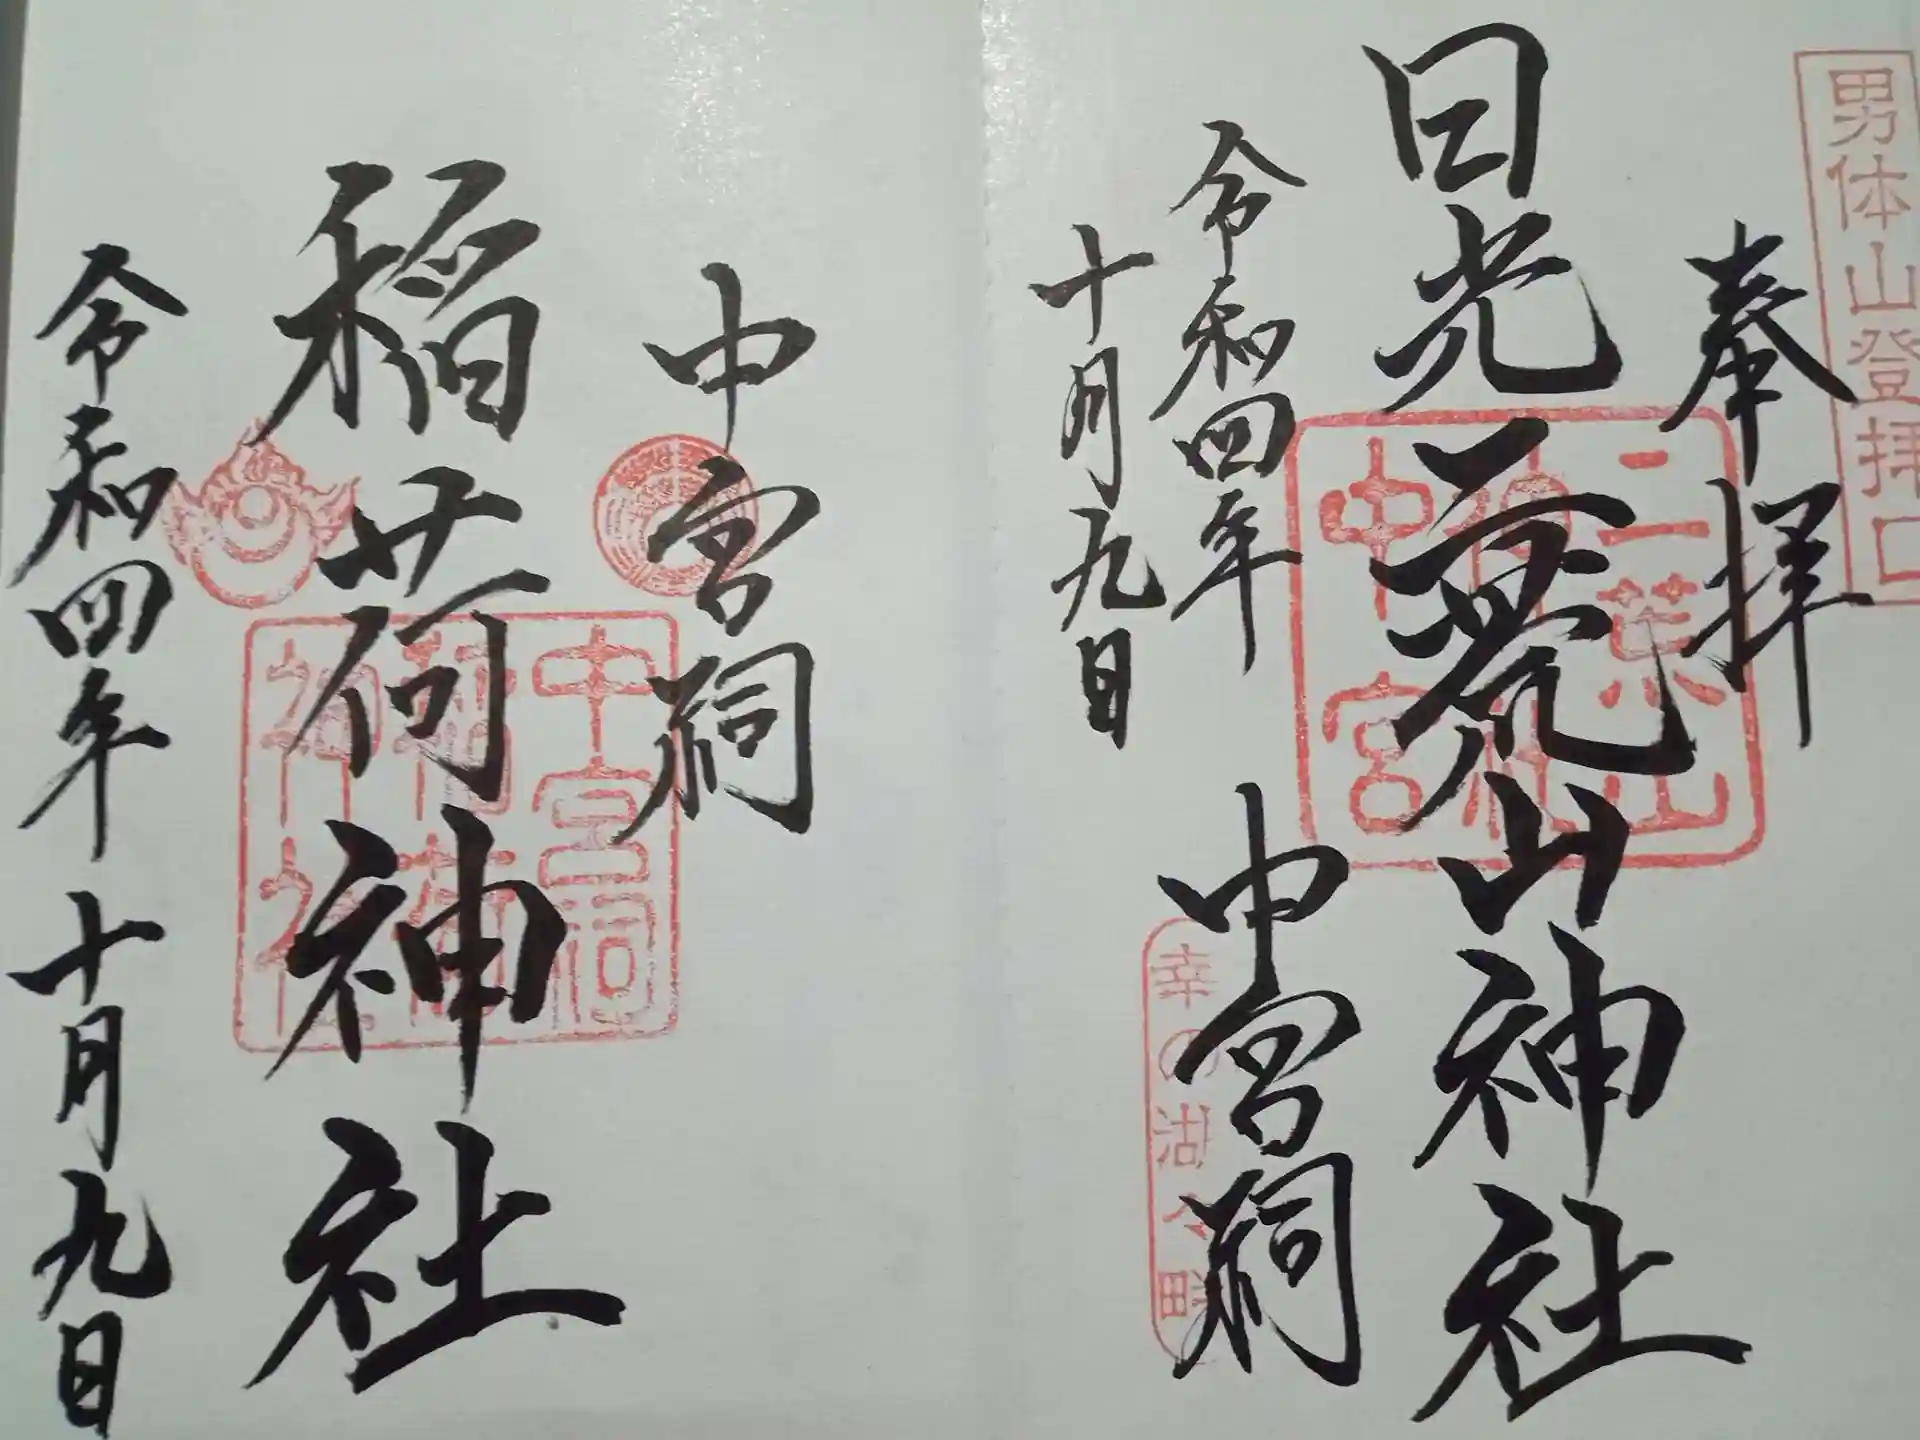 男体山登拝口
奉拝
日光二荒山神社
中宮祠
令和四年
十月九日
二荒山
神社
中宮
幸の湖々畔
中宮祠
稲荷神社
令和四年十月九日
中宮祠
稲荷
神社